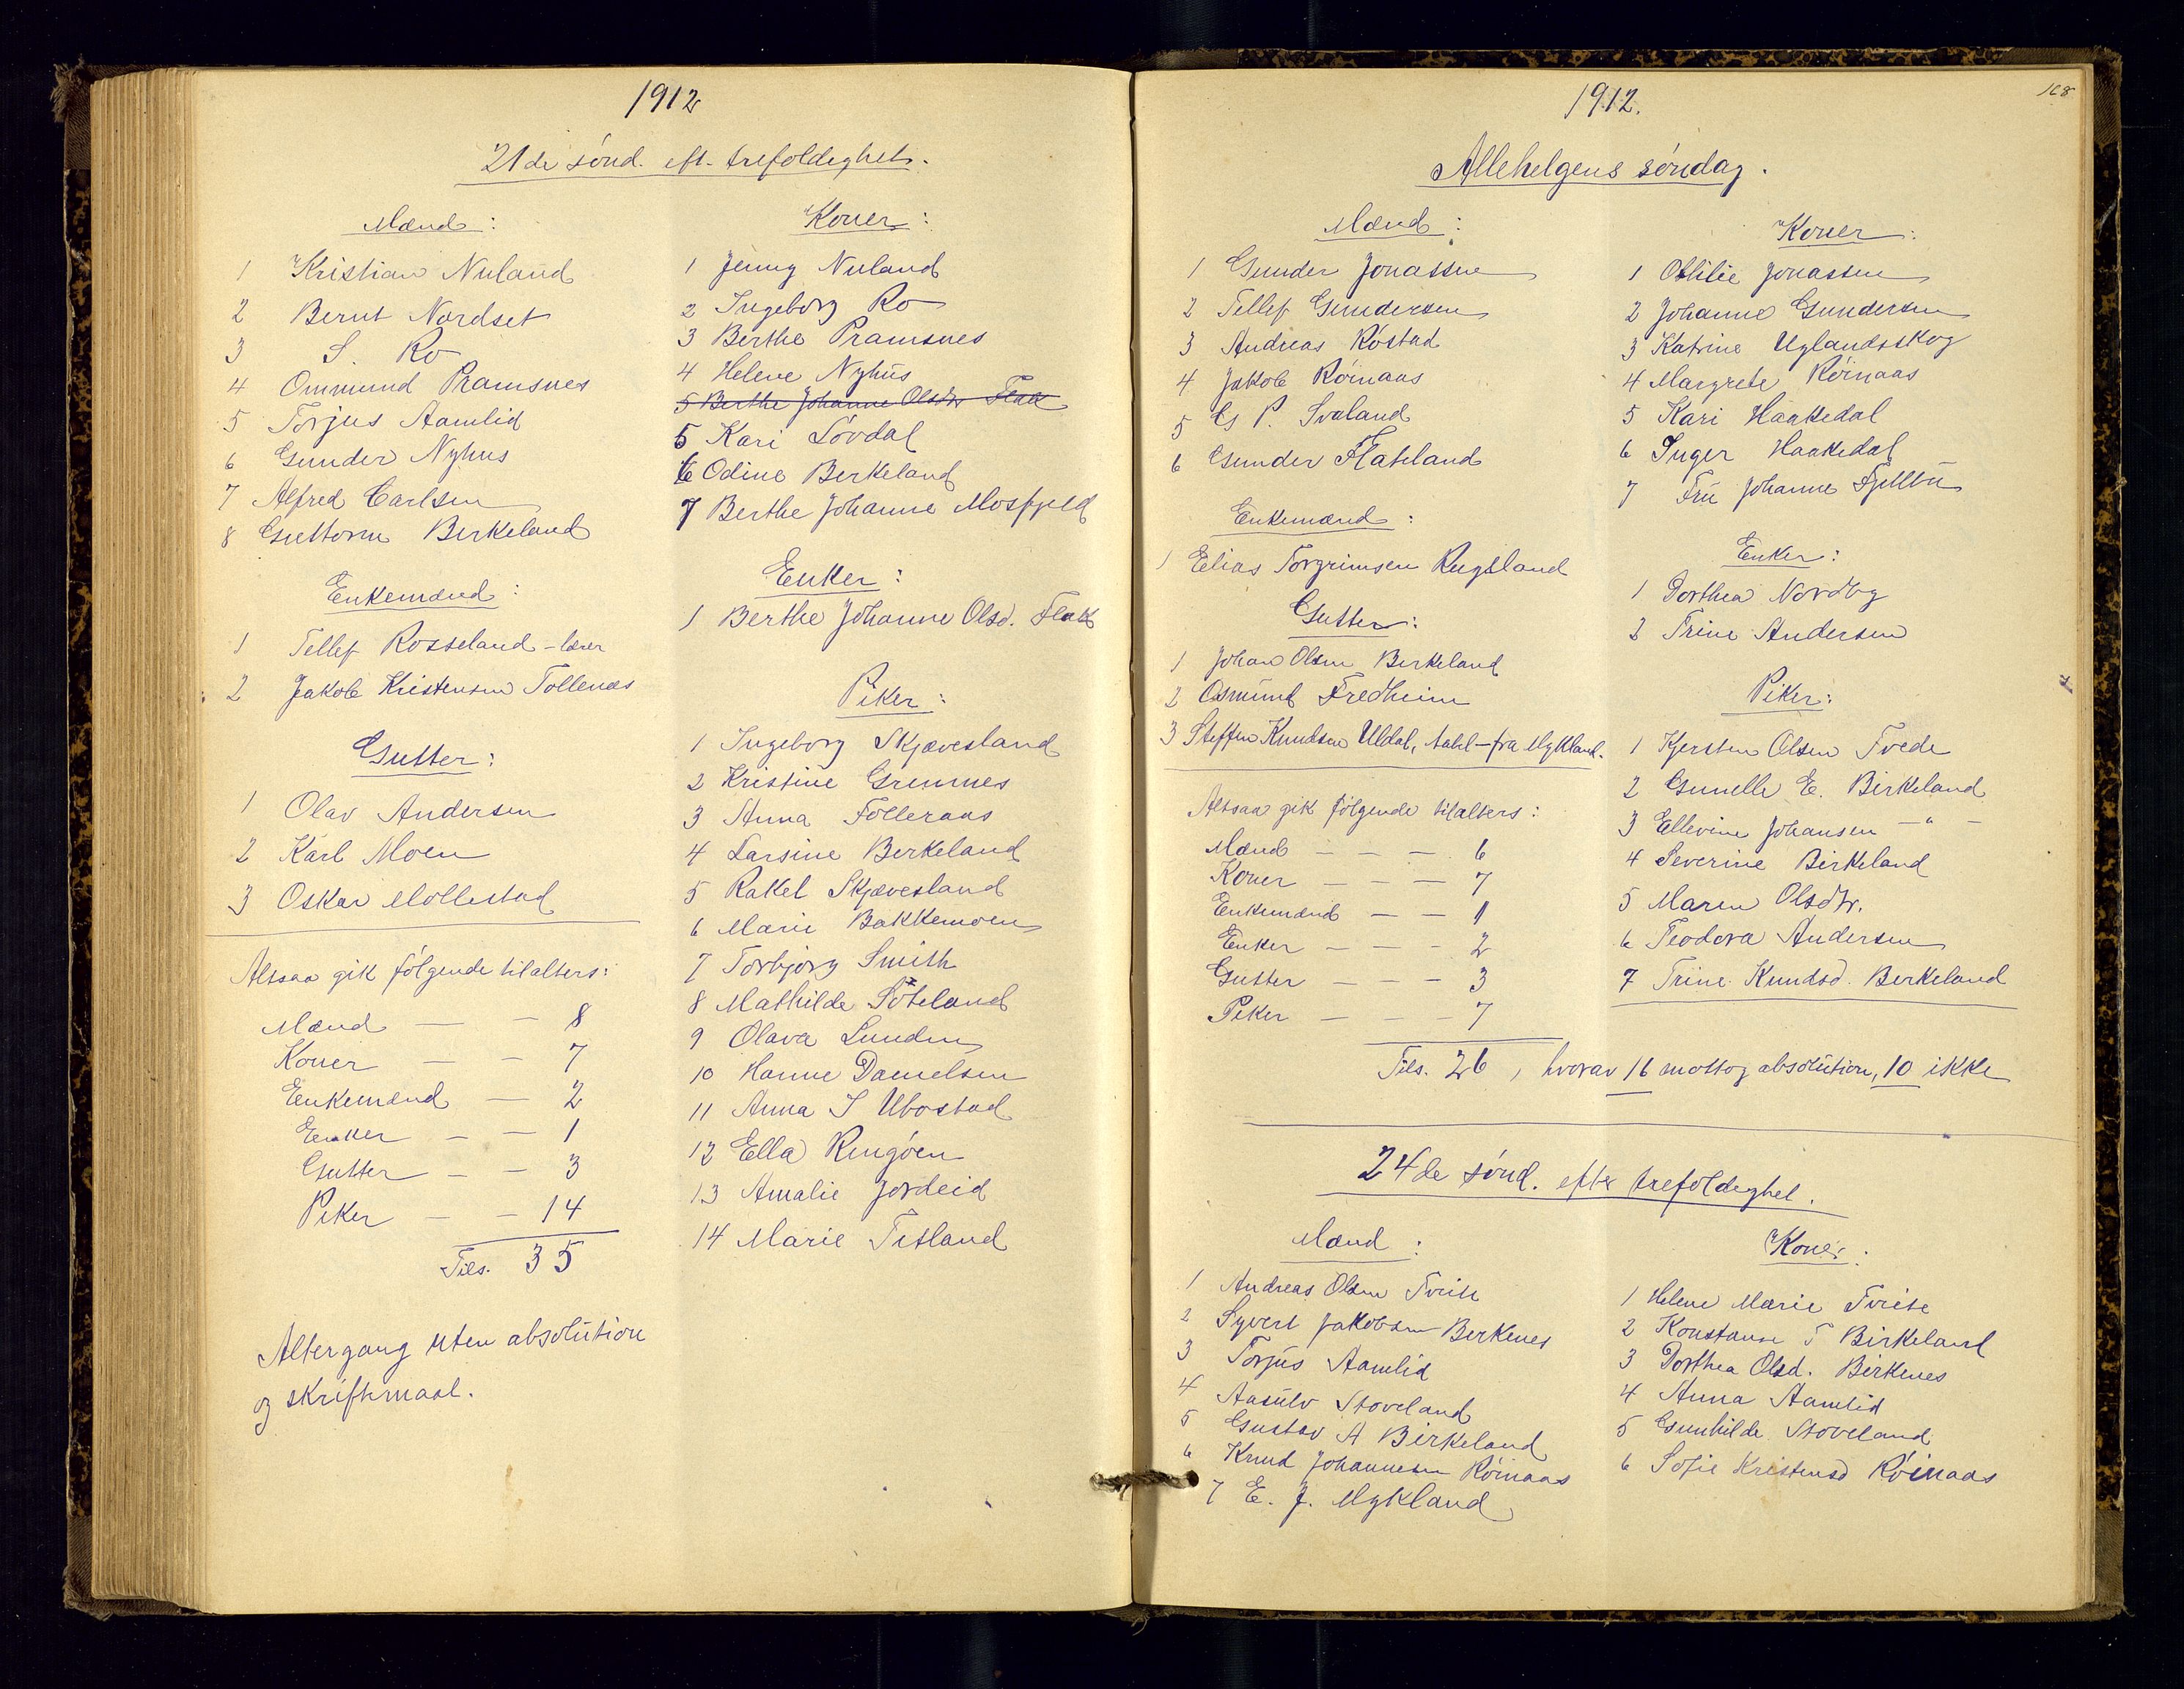 1912
21de sönd. eft. trefoldighet.
Mænd:
1 Kristian Nuland
2 Bernt Nordset
3 S. Ro
4 Ommund Pramsnes
5 Torjus Aamlid
6 Gunder Nyhus
7 Alfred Carlsen
8 Guttorm Birkeland
Enkemænd:
1 Tellef Rosseland - lærer
2 Jakob Kristensen Tollenæs
Gutter:
1 Olav Andersen
2 Karl Moen
3 Oskar Mollestad
Altsaa gik følgende tilalters:
Mænd — - 8
Koner — - 7
Enkemænd — 2
Enker - — 1
Gutter - - 3
Piker - - 14
Tils. 35
Altergang uten absolution
og skriftemaal.
Koner:
1 Jenny Nuland
2 Ingeborg Ro
3 Berthe Pramsnes
4 Helene Nyhus
5 Berthe Johanne Olsdtr Flak
5 Kari Lövdal
6 Odine Berkeland
7 Berthe Johanne Mosfjeld
Enker:
1 Berthe Johanne Olsd. Flak
Piker:
1 Ingeborg Skjævesland
2 Kristine Gremnes
3 Anna Tolleraas
4 Larsine Berkeland
5 Rakel Skjævesland
6 Marie Bakkemoen
7 Torbjörg Smith
8 Mathilde Söteland
9 Olava Lunden
10 Hanne Danielsen
11 Anna S Ubostad
12 Ella Ringöen
13 Amalie Jordeid
14 Marie Titland
168
1912.
Allehelgens söndag.
Mænd:
1 Gunder Jonassen
2 Tellef Gundersen
3 Andreas Röstad
4 Jakob Röinaas
5 G P. Svaland
6 Gunder Flateland
Enkemænd:
1 Elias Torgrimsen Rugsland
Gutter:
1 Johan Olsen Berkeland
2 Osmund Fredheim
3 Steffen Knudsen Uldal, fra Mykland.
Altsaa gik følgende tilalters:
Mænd — — — 6
Koner — — — 7
Enkemænd — — 1
Enker — — - 2
Gutter — — - 3
Piker — — - 7
Tils. 26, hvorav 16 mottog absolution, 10 ikke
Koner:
1 Ottilie Jonassen
2 Johanne Gundersen
3 Katrine Uglandsskog
4 Margrete Röinaas
5 Kari Haakedal
6 Inger Haakedal
7 Fru Johanne Fjellbu
Enker:
1 Dorthea Nordby
2 Trine Andersen
Piker:
1 Kjersten Olsen Tvede
2 Gunelle E. Birkeland
3 Ellevine Johansen — " —
4 Severine Birkeland
5 Maren Olsdtr.
6 Teodora Andersen
7 Trine Knudsd. Berkeland
24de sönd. efter trefoldighet.
Mænd:
1 Andreas Olsen Tveite
2 Syvert Jakobsen Berkenes
3 Torjus Aamlid
4 Aasulv Stoveland
5 Gustav A Birkeland
6 Knud Johannesen Röinaas
7 E. J. Mykland
Koner:
1 Helene Marie Tveite
2 Konstanse T Birkeland
3 Dorthea Olsd. Birkenes
4 Anna Aamlid
5 Gunhilde Stoveland
6 Sofie Kristensd Röinaas